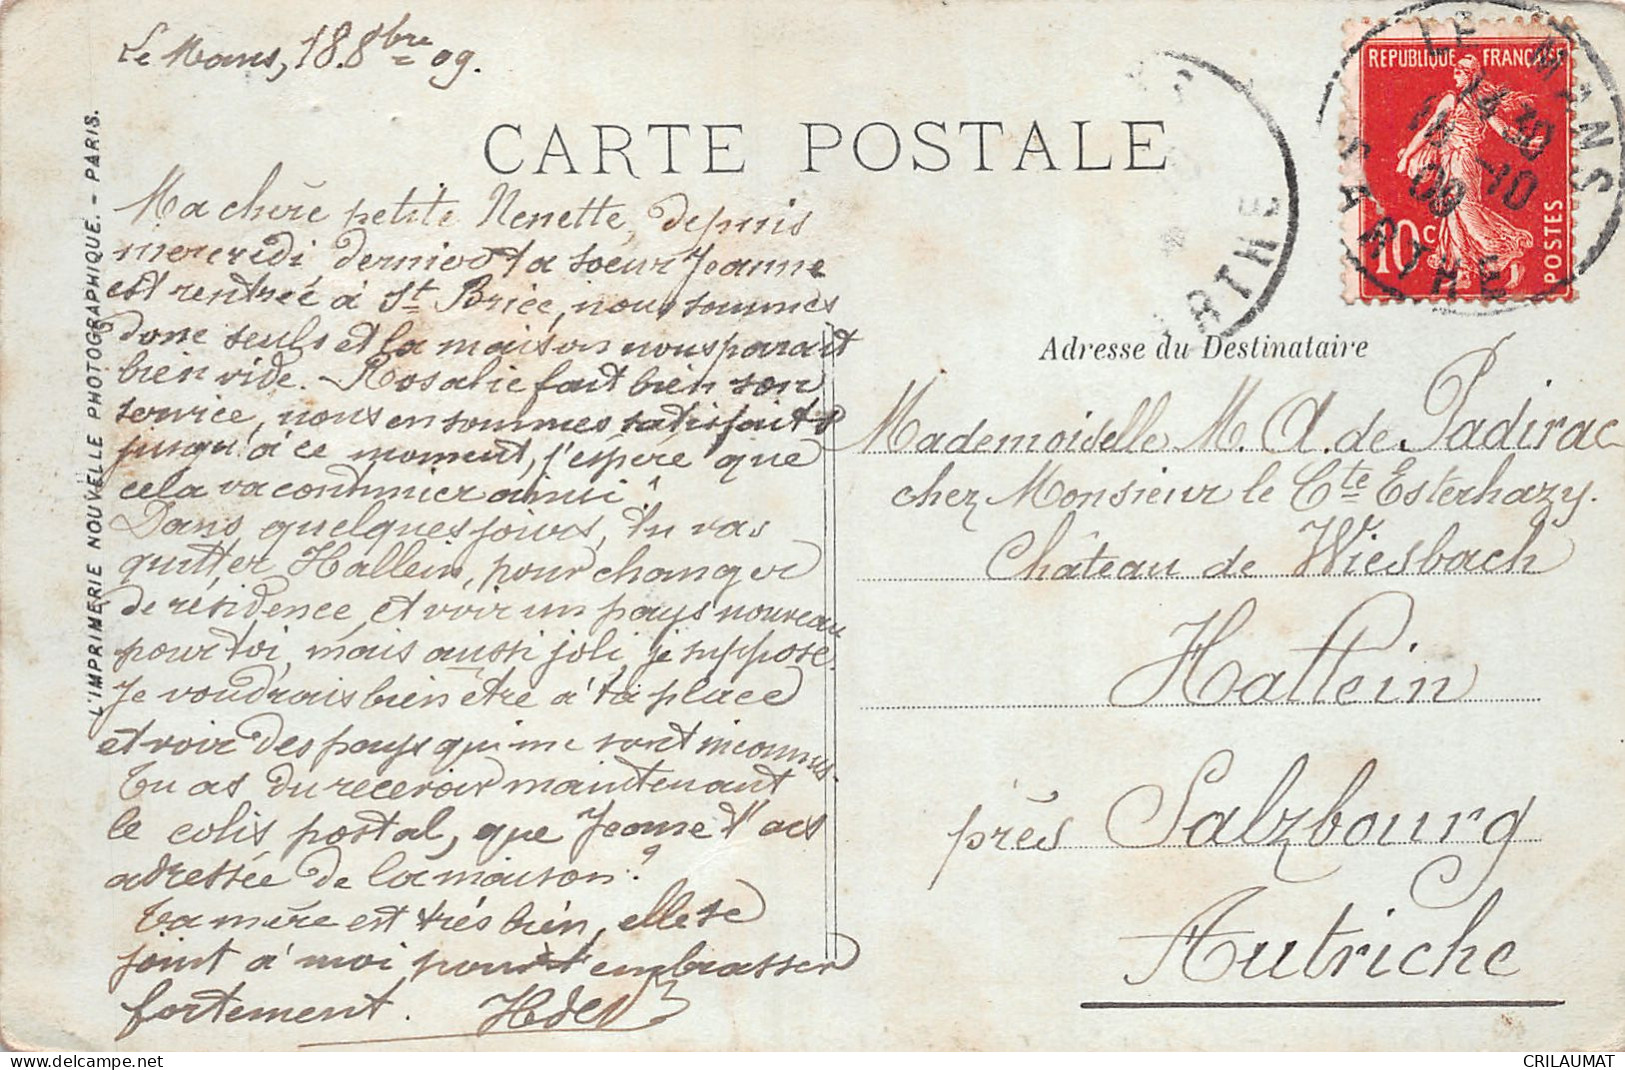 Le Mans, 18.8bre 09.
CARTE POSTALE
REPUBLIQUE FRANÇAISE
10c
POSTES
LE MANS
14 30
18 -10
09
SARTHE
ARTHE
L'IMPRIMERIE NOUVELLE PHOTOGRAPHIQUE. - PARIS.
Ma chère petite Nenette, depuis
mercredi dernier ta soeur Jeanne
est rentrée à St Brice, nous sommes
donc seuls et la maison nous parait
bien vide. Rosalie fait bien son
service, nous en sommes satisfaits
jusqu'à ce moment, j'espère que
cela va continuer ainsi.
Dans quelques jours, tu vas
quitter Hallein, pour changer
de résidence, et voir un pays nouveau
pour toi, mais aussi joli, je suppose.
Je voudrais bien être à ta place
et voir des pays qui me sont inconnus.
Tu as du recevoir maintenant
le colis postal, que Jeanne t'as
adressée de la maison?
Ta mère est très bien, elle se
joint à moi pour t'embrasser
fortement.
Adresse du Destinataire
Mademoiselle M. A. de Padirac
chez Monsieur le Cte Esterhazy.
Château de Wiesbach
Hallein
près Salzbourg
Autriche
CRILAUMAT